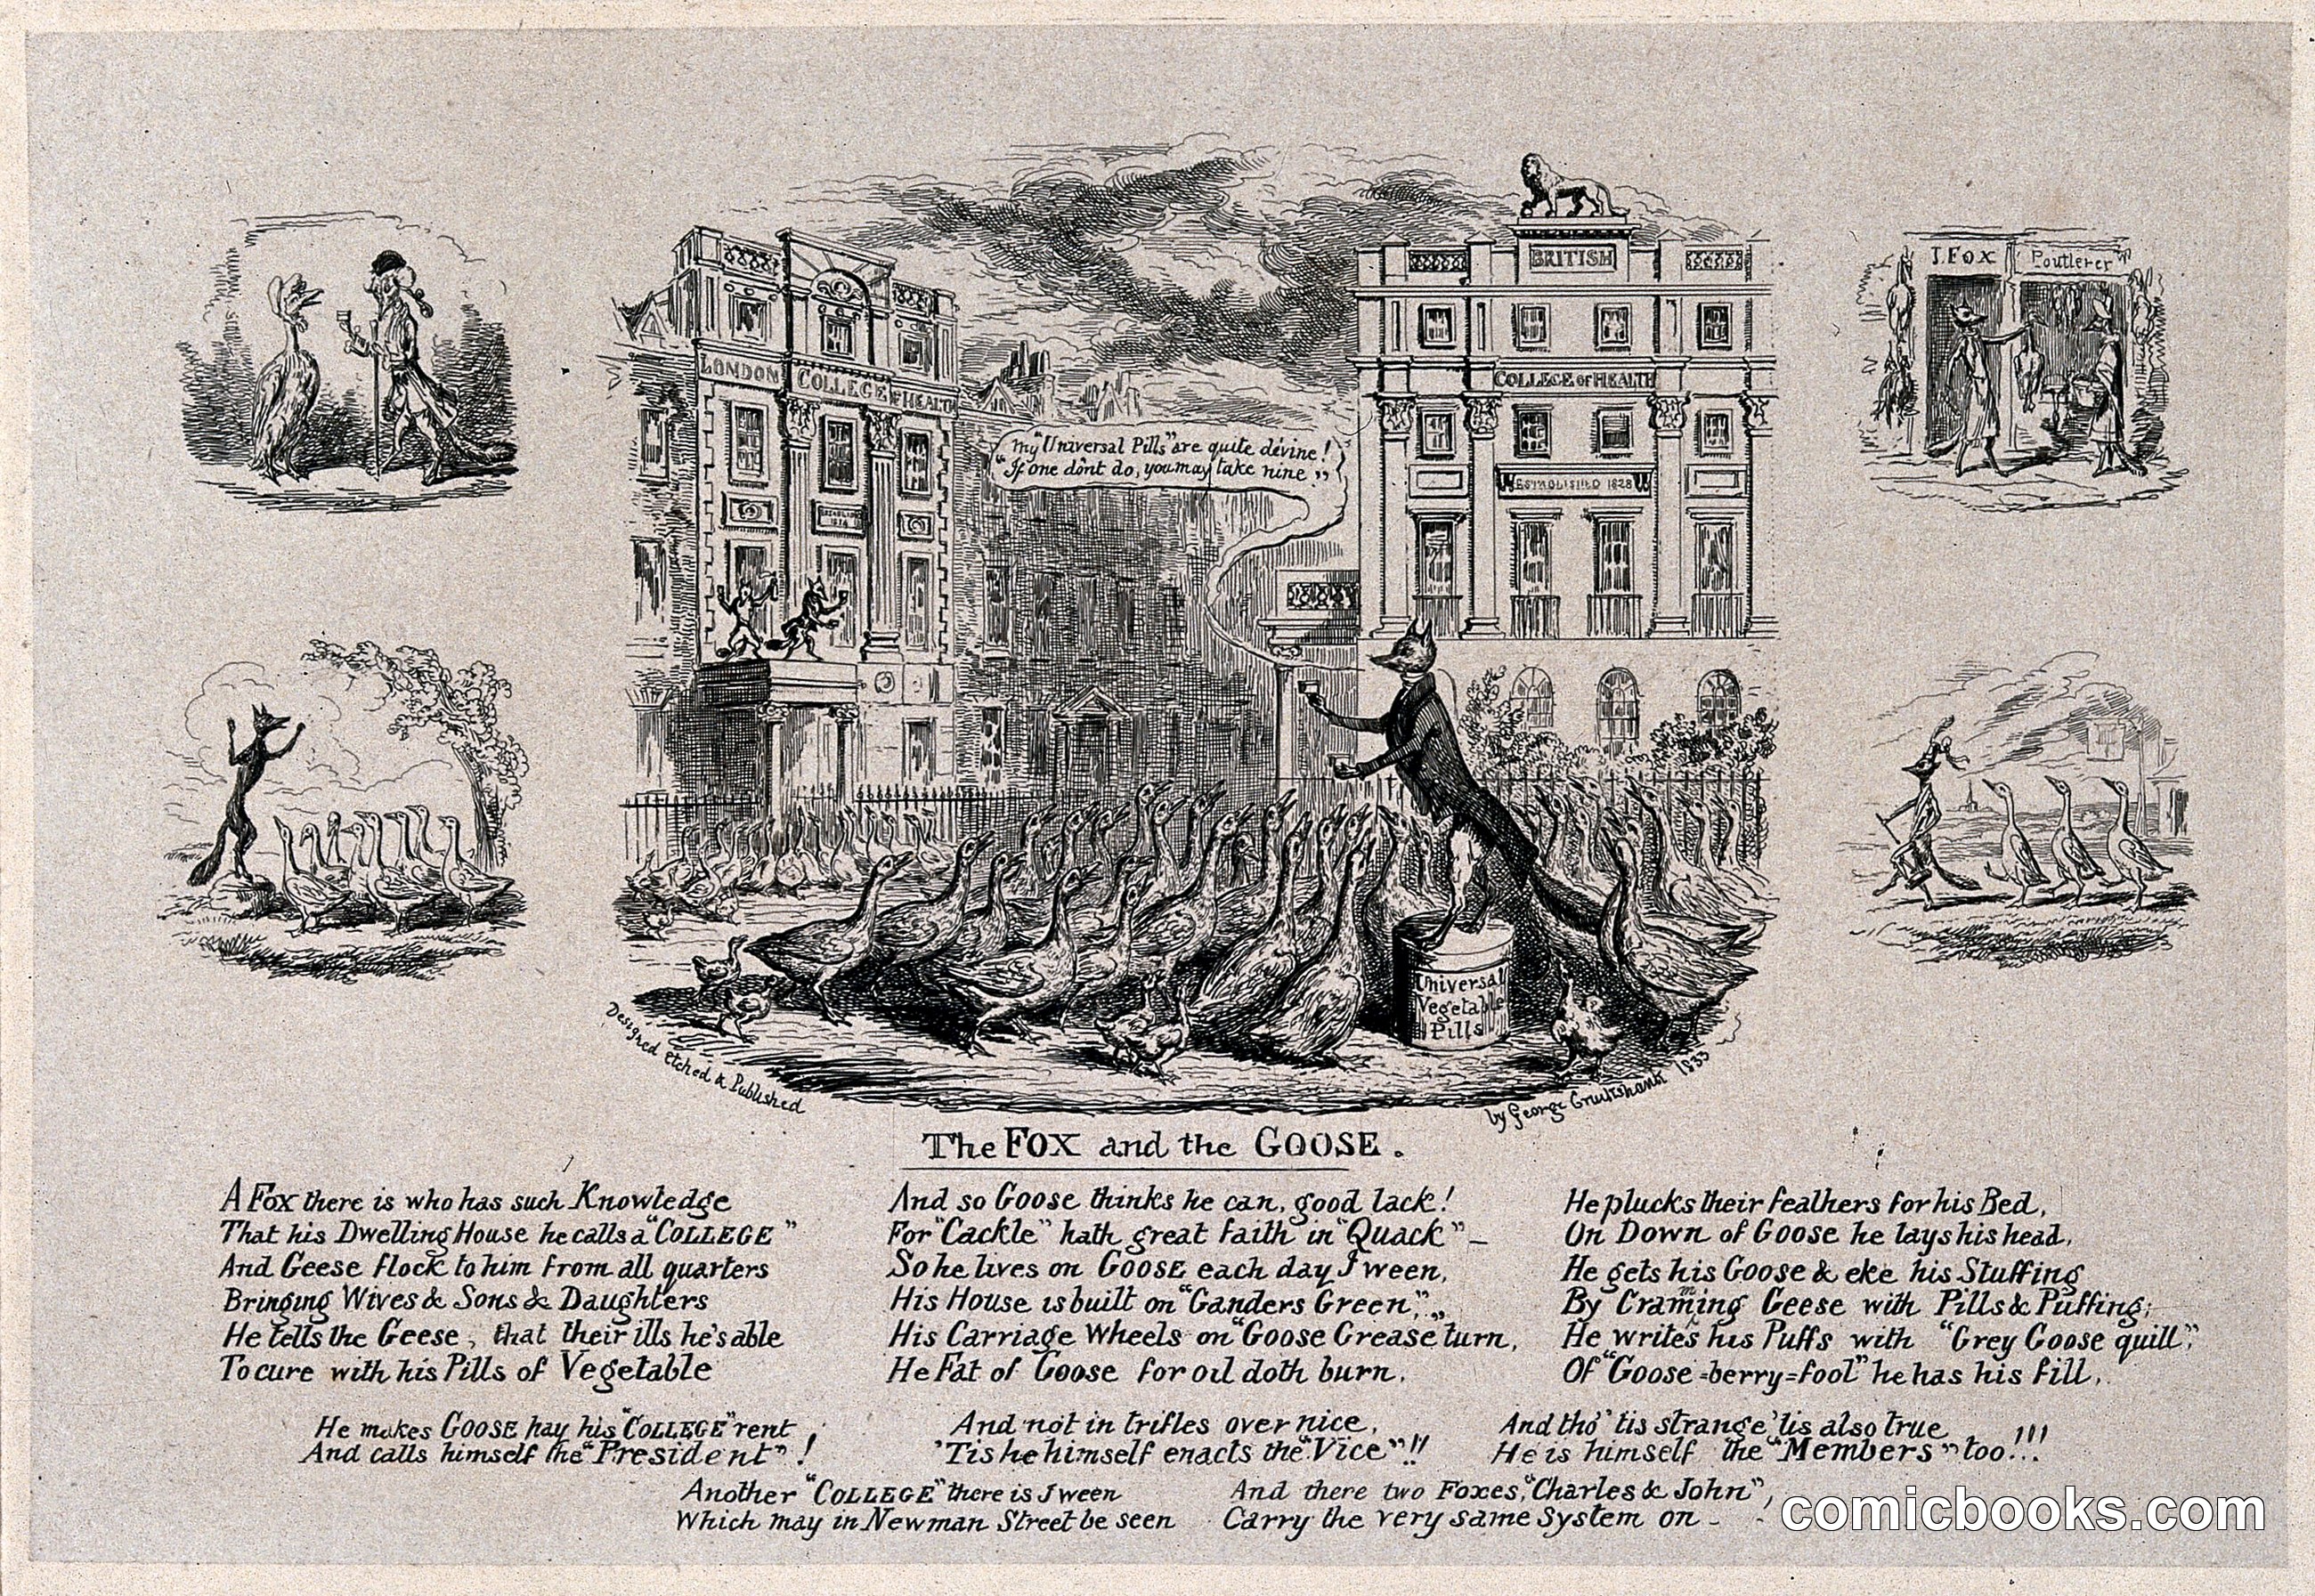 J. FOX
Poutlerer
BRITISH
LONDON COLLEGE of HEALTH
COLLEGE OF HEALTH
My "Universal Pills" are quite devine!
"If one dont do, you may take nine."
ESTABLISHED 1828
Universal
Vegetable
Pills
Designed Etched & Published
by George Cruikshank 1833
The FOX and the GOOSE.
A Fox there is who has such Knowledge
That his Dwelling House he calls a "COLLEGE"
And Geese flock to him from all quarters
Bringing Wives & Sons & Daughters
He tells the Geese, that their ills he's able
To cure with his Pills of Vegetable
And so Goose thinks he can, good lack!
For "Cackle" hath great faith in "Quack" –
So he lives on GOOSE each day I ween,
His House is built on "Ganders Green",
His Carriage Wheels on "Goose Grease turn,
He Fat of Goose for oil doth burn.
He plucks their feathers for his Bed,
On Down of Goose he lays his head,
He gets his Goose & eke his Stuffing
By Cramming Geese with Pills & Puffing;
He writes his Puffs with "Grey Goose quill",
Of "Goose=berry=fool" he has his fill,
He makes GOOSE hay his "COLLEGE" rent
And calls himself the "President"!
And not in trifles over nice,
'Tis he himself enacts the "Vice"!!
And tho' tis strange 'tis also true
He is himself the "Members" too!!!
Another "COLLEGE" there is I ween
Which may in Newman Street be seen
And there two Foxes, "Charles & John",
Carry the very same System on –
comicbooks.com